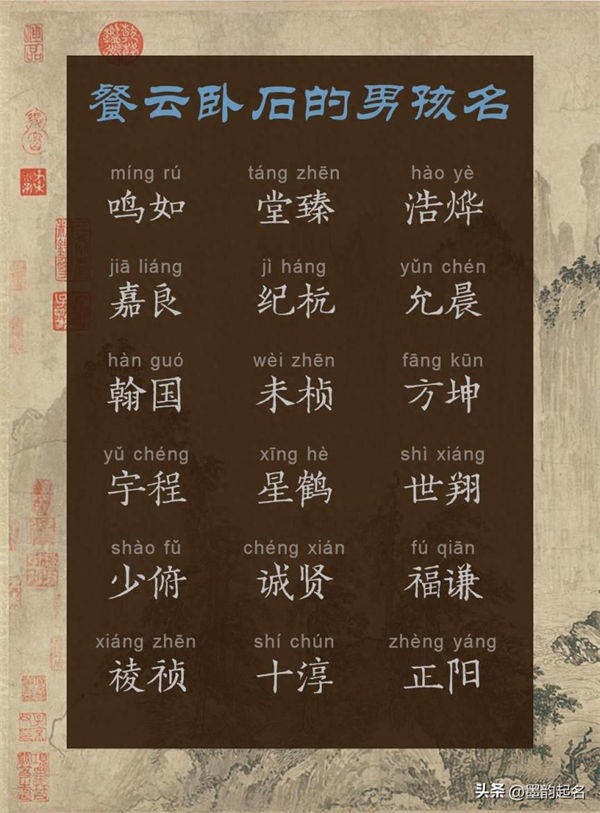 餐云卧石的男孩名
míng rú táng zhēn hào yè
鸣如 堂臻 浩烨
jiā liáng jì háng yǔn chén
嘉良 纪杭 允晨
hàn guó wèi zhēn fāng kūn
翰国 未桢 方坤
yǔ chéng xīng hè shì xiáng
宇程 星鹤 世翔
shào fǔ chéng xián fú qiān
少俯 诚贤 福谦
xiáng zhēn shí chún zhèng yáng
祾祯 十淳 正阳
头条 @墨韵起名